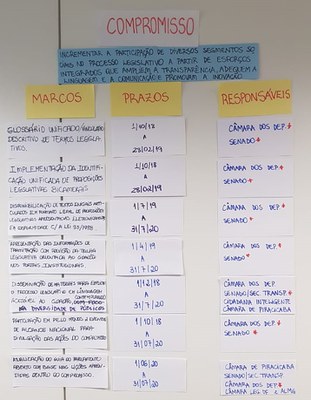 COMPROMISSO
INCREMENTAR A PARTICIPAÇÃO DE DIVERSOS SEGMENTOS SO
CIAIS NO PROCESSO LEGISLATIVO A PARTIR DE ESFORÇOS
INTEGRADOS QUE AMPLIEM A TRANSPARÊNCIA, ADEQUEM A
LINGUAGEM E A COMUNICAÇÃO E PROMOVAM A INOVAÇÃO
MARCOS
PRAZOS
RESPONSÁVEIS
GLOSSÁRIO UNIFICADO
DESCRITIVO DE TERMOS LEGISLA
TIVOS.
1/10/18
A
28/02/19
CÂMARA DOS DEP.
SENADO
IMPLEMENTAÇÃO DA IDENTIFI
CAÇÃO UNIFICADA DE PROPOSIÇÕES
LEGISLATIVAS BICAMERAIS
1/10/18
A
28/02/19
CÂMARA DOS DEP.
SENADO
DISPONIBILIZAÇÃO DE TEXTOS
EM FORMATO LEXML DE PROPOSIÇÕES
LEGISLATIVAS
1/7/19
A
31/7/20
CÂMARA DOS DEP.
SENADO
APRESENTAÇÃO DAS INFORMAÇÕES DE
TRAMITAÇÃO COM REVISÃO DA
LEGISLATIVA ORIENTADA AO CIDADÃO
NOS PORTAIS INSTITUCIONAIS
1/4/19
A
31/7/20
CÂMARA DOS DEP.
SENADO
DISSEMINAÇÃO DE MATERIAIS PARA
O PROCESSO LEGISLATIVO EM LINGUAGEM
DIVERSIDADE DE PÚBLICOS
1/12/18
A
31/7/20
CÂMARA DOS DEP
SENADO/SEC TRANSP.
CIDADANIA INTELIGENTE
CÂMARA DE PIRACICABA
PARTICIPAÇÃO EM PELO MENOS 4 EVENTOS
DE ALCANCE NACIONAL PARA
DIVULGAÇÃO DAS AÇÕES DO COMPROMISSO
1/10/18
A
31/07/20
CÂMARA DOS DEP.
SENADO
PUBLICAÇÃO DO GUIA DO PARLAMENTO
ABERTO COM BASE NAS LIÇÕES APREN
DIDAS DENTRO DO COMPROMISSO.
1/06/20
A
31/07/20
CÂMARA DE PIRACICABA
SENADO/SEC. TRANSP
CÂMARA DOS DEP.
CÂMARA LEG DF E ALMG